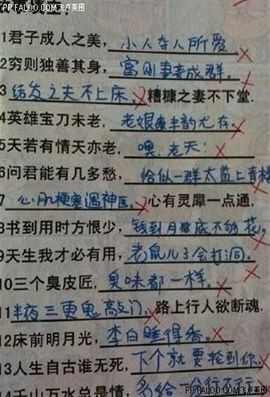 PP.FALOO.COM飞卢美图
1君子成人之美，小人夺人所爱
2穷则独善其身，富则妻妾成群。
3结发之夫不上床，糟糠之妻不下堂.
4英雄宝刀未老，老娘半韵尤存
5天若有情天亦老，噢，老天！
6问君能有几多愁，恰似一群太监上青楼
7心肌梗塞遇神医，心有灵犀一点通.
8书到用时方恨少，钱到月底不够花。
9天生我才必有用，老鼠儿子会打洞。
10三个臭皮匠，臭味都一样。
11半夜三更鬼敲门，路上行人欲断魂.
12床前明月光，李白睡得香。
13人生自古谁无死，下个就要轮到你
14千山万水总是情，多给
PP.FALOO.COM飞卢美图